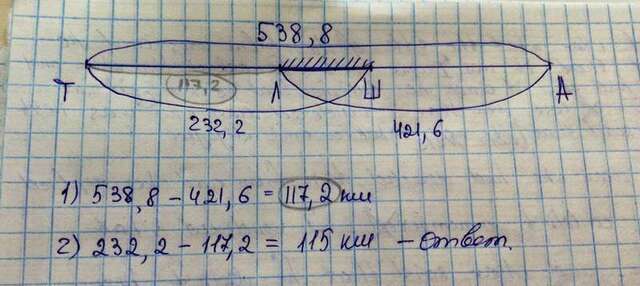 538,8
117,2
Т Л Ш А
232,2 421,6
1) 538,8 - 421,6 = 117,2 км
2) 232,2 - 117,2 = 115 км - Ответ.